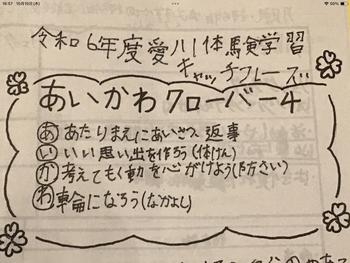 16:57 10月16日(水)
令和6年度愛川体験学習
キャッチフレーズ
あいかわクローバー4
あ あたりまえにあいさつ、返事
い いい思い出を作ろう(体けん)
か 考えてもく動を心がけよう(防さい)
わ 輪になろう(なかよし)